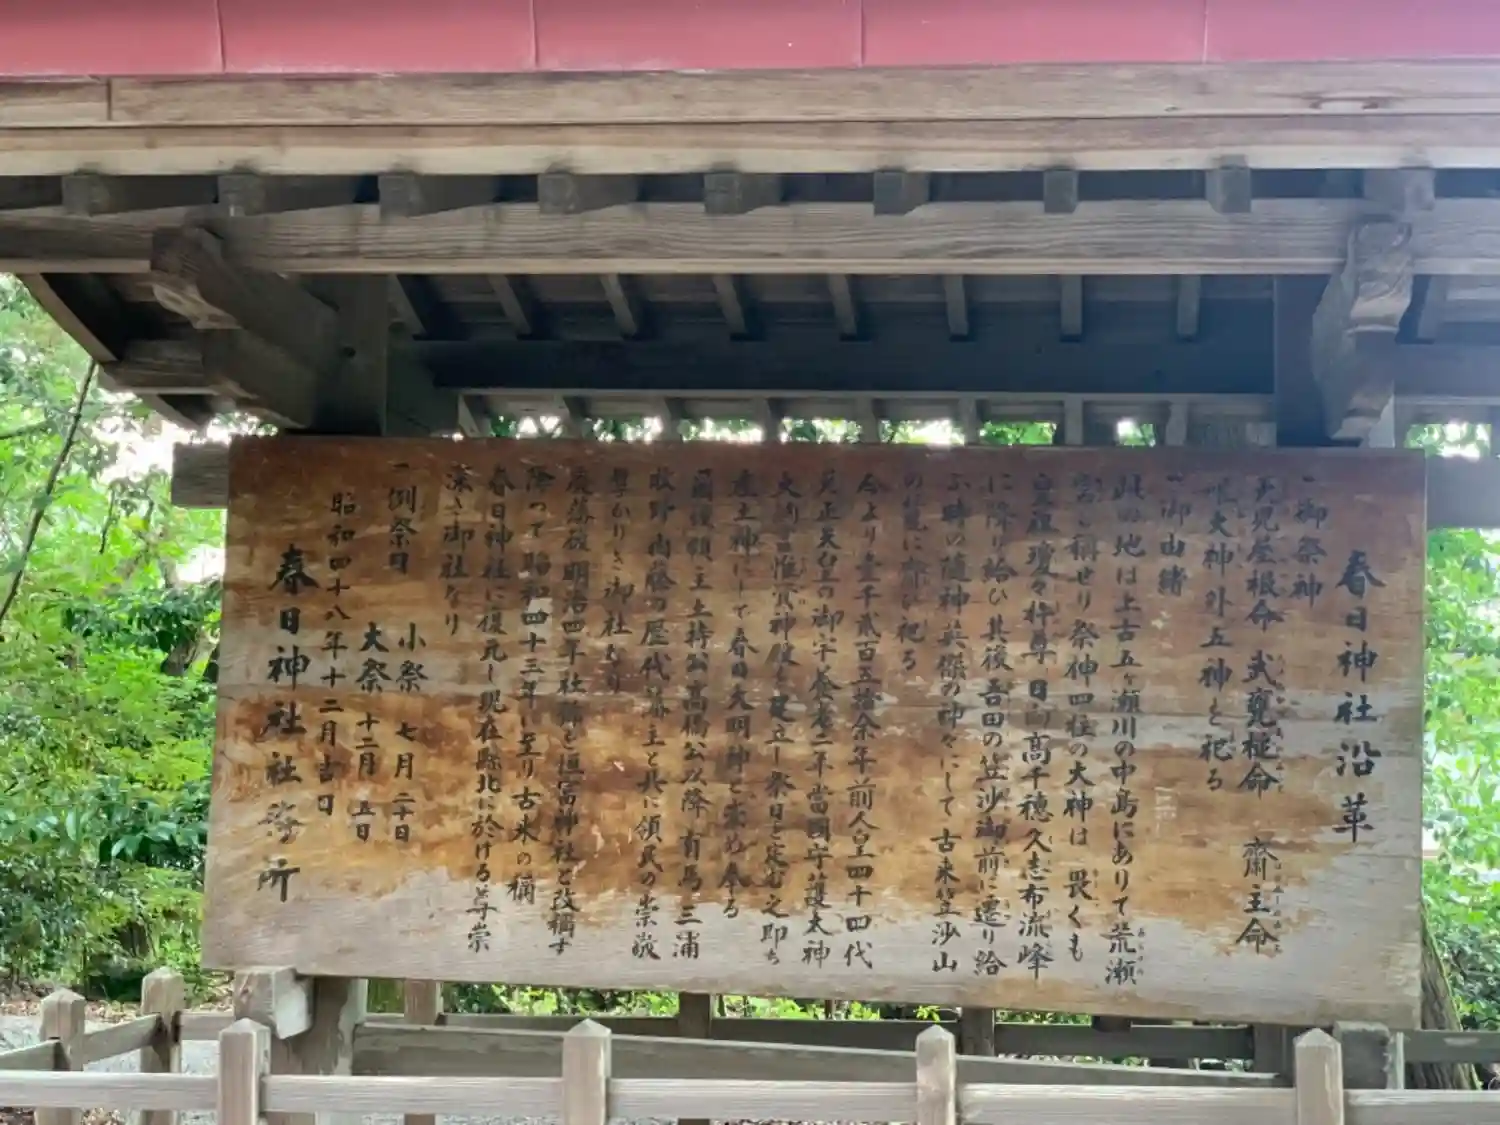 春日神社沿革
一御祭神
天児屋根命 武甕槌命 齋主命
唯大神外五神を祀る
一御由緒
此の地は上古五ヶ瀬川の中島にありて荒瀬
宮と稱せり祭神四柱の大神は畏くも
皇祖瓊々杵尊日向高千穂久志布流峰
に降り給ひ其後吾田の笠沙御前に遷り給
ふ時の随神英傑の神々にして古来笠沙山
の麓に齋ひ祀る
今より壹千貳百五拾余年前人皇四十四代
元正天皇の御宇養老二年當國守護大神
大 惟 神殿を建立し祭日を定む之即ち
産土神にして春日大明神と崇め奉る
爾後領主土持公高橋公以降有馬三浦
牧野内藤の歴代藩主と共に領民の崇敬
篤かりき御社なり
廃藩後明治四年社號を恒富神社と改稱す
降って昭和四十三年に至り古来の稱
春日神社に復元し現在縣北に於ける尊崇
深き御社なり
一例祭日 小祭 七月二十日
大祭 十二月五日
昭和四十八年十二月吉日
春日神社社務所